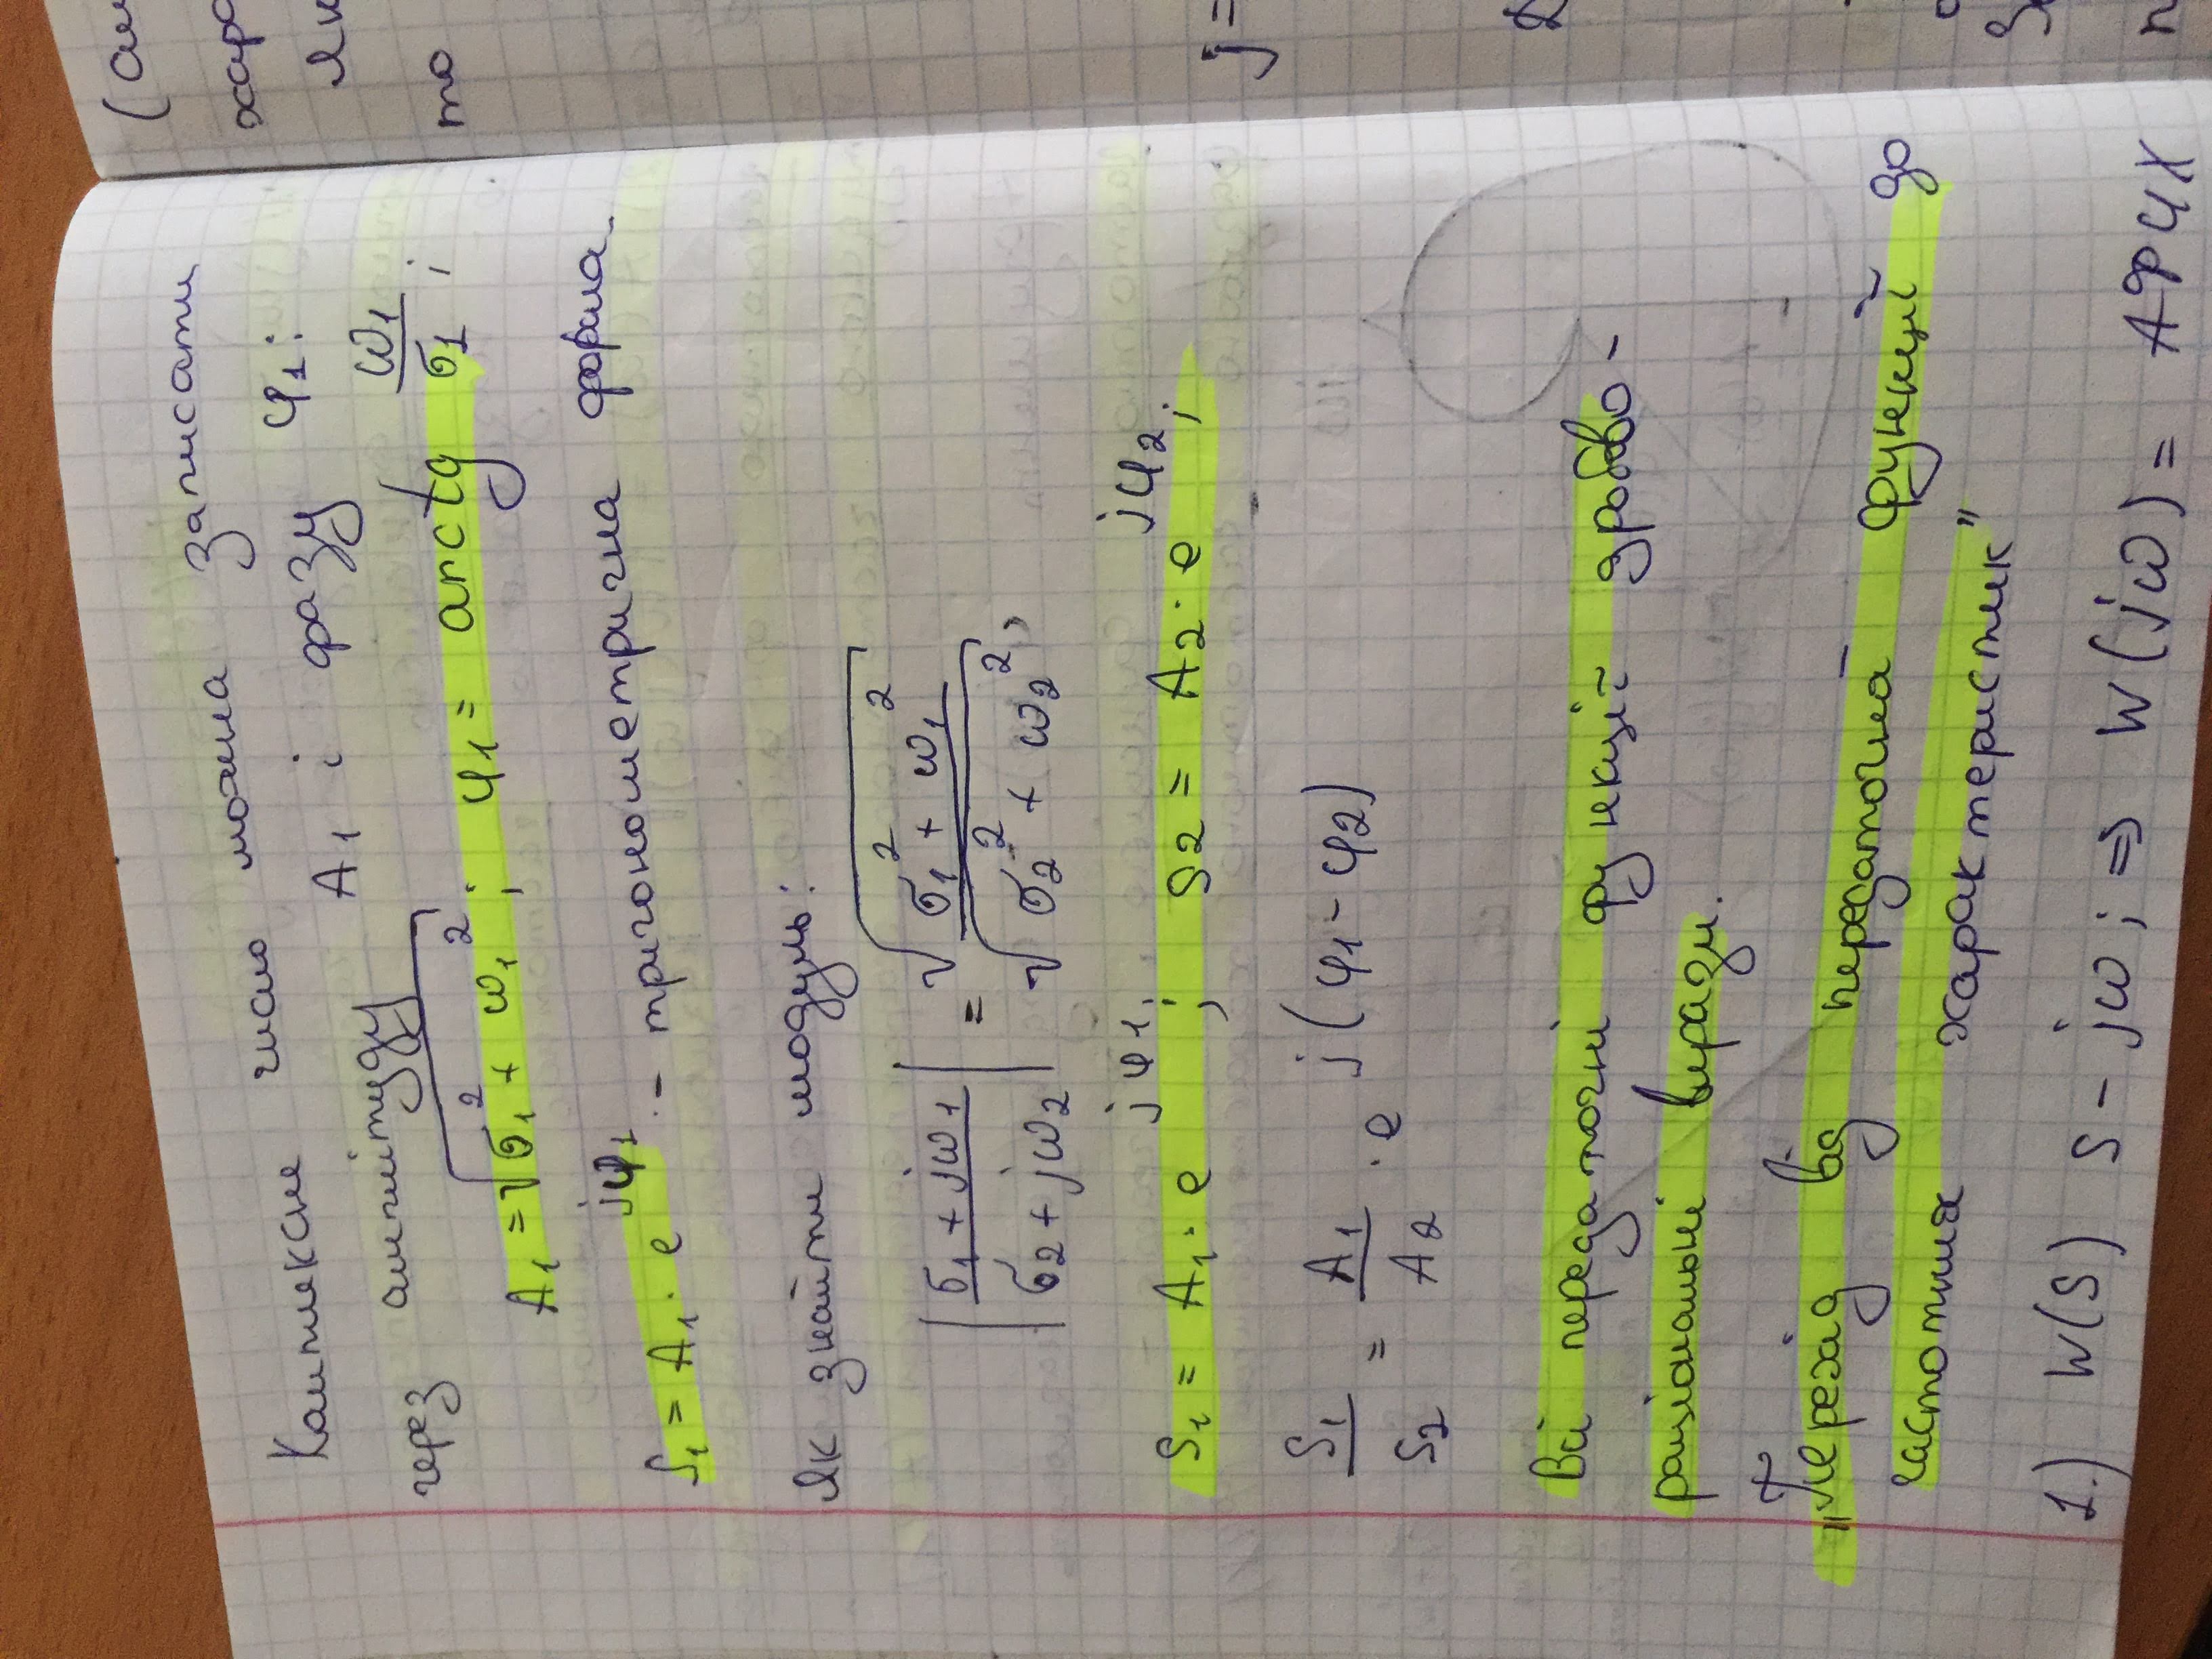 Комплексне число можна записати
через амплітуду A₁ і фазу φ₁:
A₁ = √(σ₁² + ω₁²); φ₁ = arctg ω₁/σ₁;
S₁ = A₁ · e^(jφ₁) - тригонометрична форма
Як знайти модуль:
|(σ₁ + jω₁)/(σ₂ + jω₂)| = √(σ₁² + ω₁²)/√(σ₂² + ω₂²),
S₁ = A₁ · e^(jφ₁); S₂ = A₂ · e^(jφ₂);
S₁/S₂ = A₁/A₂ · e^(j(φ₁ - φ₂))
Всі передаточні функції дробово-
раціональні вирази.
„Перехід від передаточна функції до
частотних характеристик”
1.) W(S) S - jω; ⇒ W(jω) = АФЧХ
(ам
хара
Як
то
j =